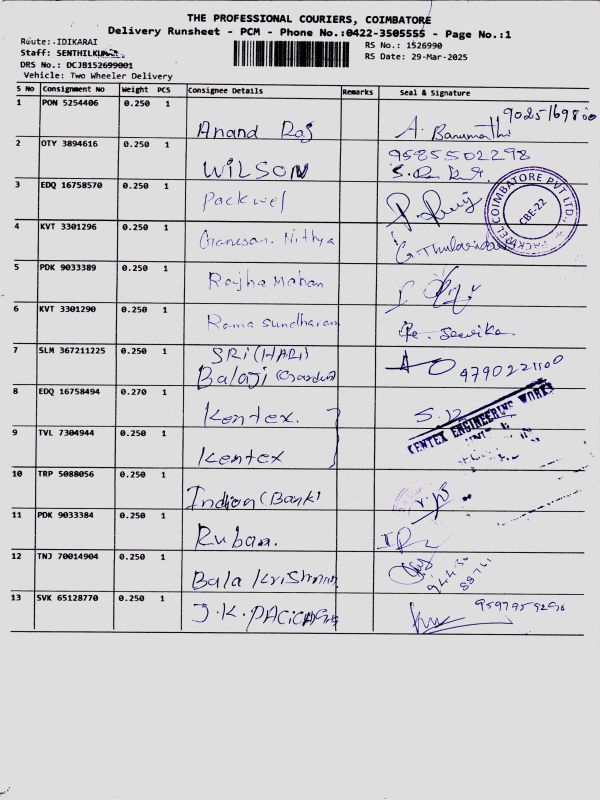 THE PROFESSIONAL COURIERS, COIMBATORE
Delivery Runsheet - PCM - Phone No.:0422-3505555 - Page No.:1
Route: IDIKARAI
RS No.: 1526990
Staff: SENTHILKUMAR
RS Date: 29-Mar-2025
DRS No.: DCJB152699001
Vehicle: Two Wheeler Delivery
S No Consignment No Weight PCS Consignee Details Remarks Seal & Signature
1 PON 5254406 0.250 1 Anand Raj A. Banumathi
2 OTY 3894616 0.250 1 WILSON 9585502298
3 EDQ 16758570 0.250 1 Packwel PACKWEL COIMBATORE PVT LTD. CBE-22
4 KVT 3301296 0.250 1 Ganesan. Nithya
5 PDK 9033389 0.250 1 Rajha Mohan
6 KVT 3301290 0.250 1 Rama Sundharam
7 SLM 367211225 0.250 1 SRI (HARI)
Balaji (Garden) 4790221100
8 EDQ 16758494 0.270 1 Kentex. KENTEX ENGINEERING WORKS
9 TVL 7304944 0.250 1 Kentex
10 TRP 5088056 0.250 1 Indian (Bank)
11 PDK 9033384 0.250 1 Ruban.
12 TNJ 70014904 0.250 1 Bala Krishnan
13 SVK 65128770 0.250 1 J.K.